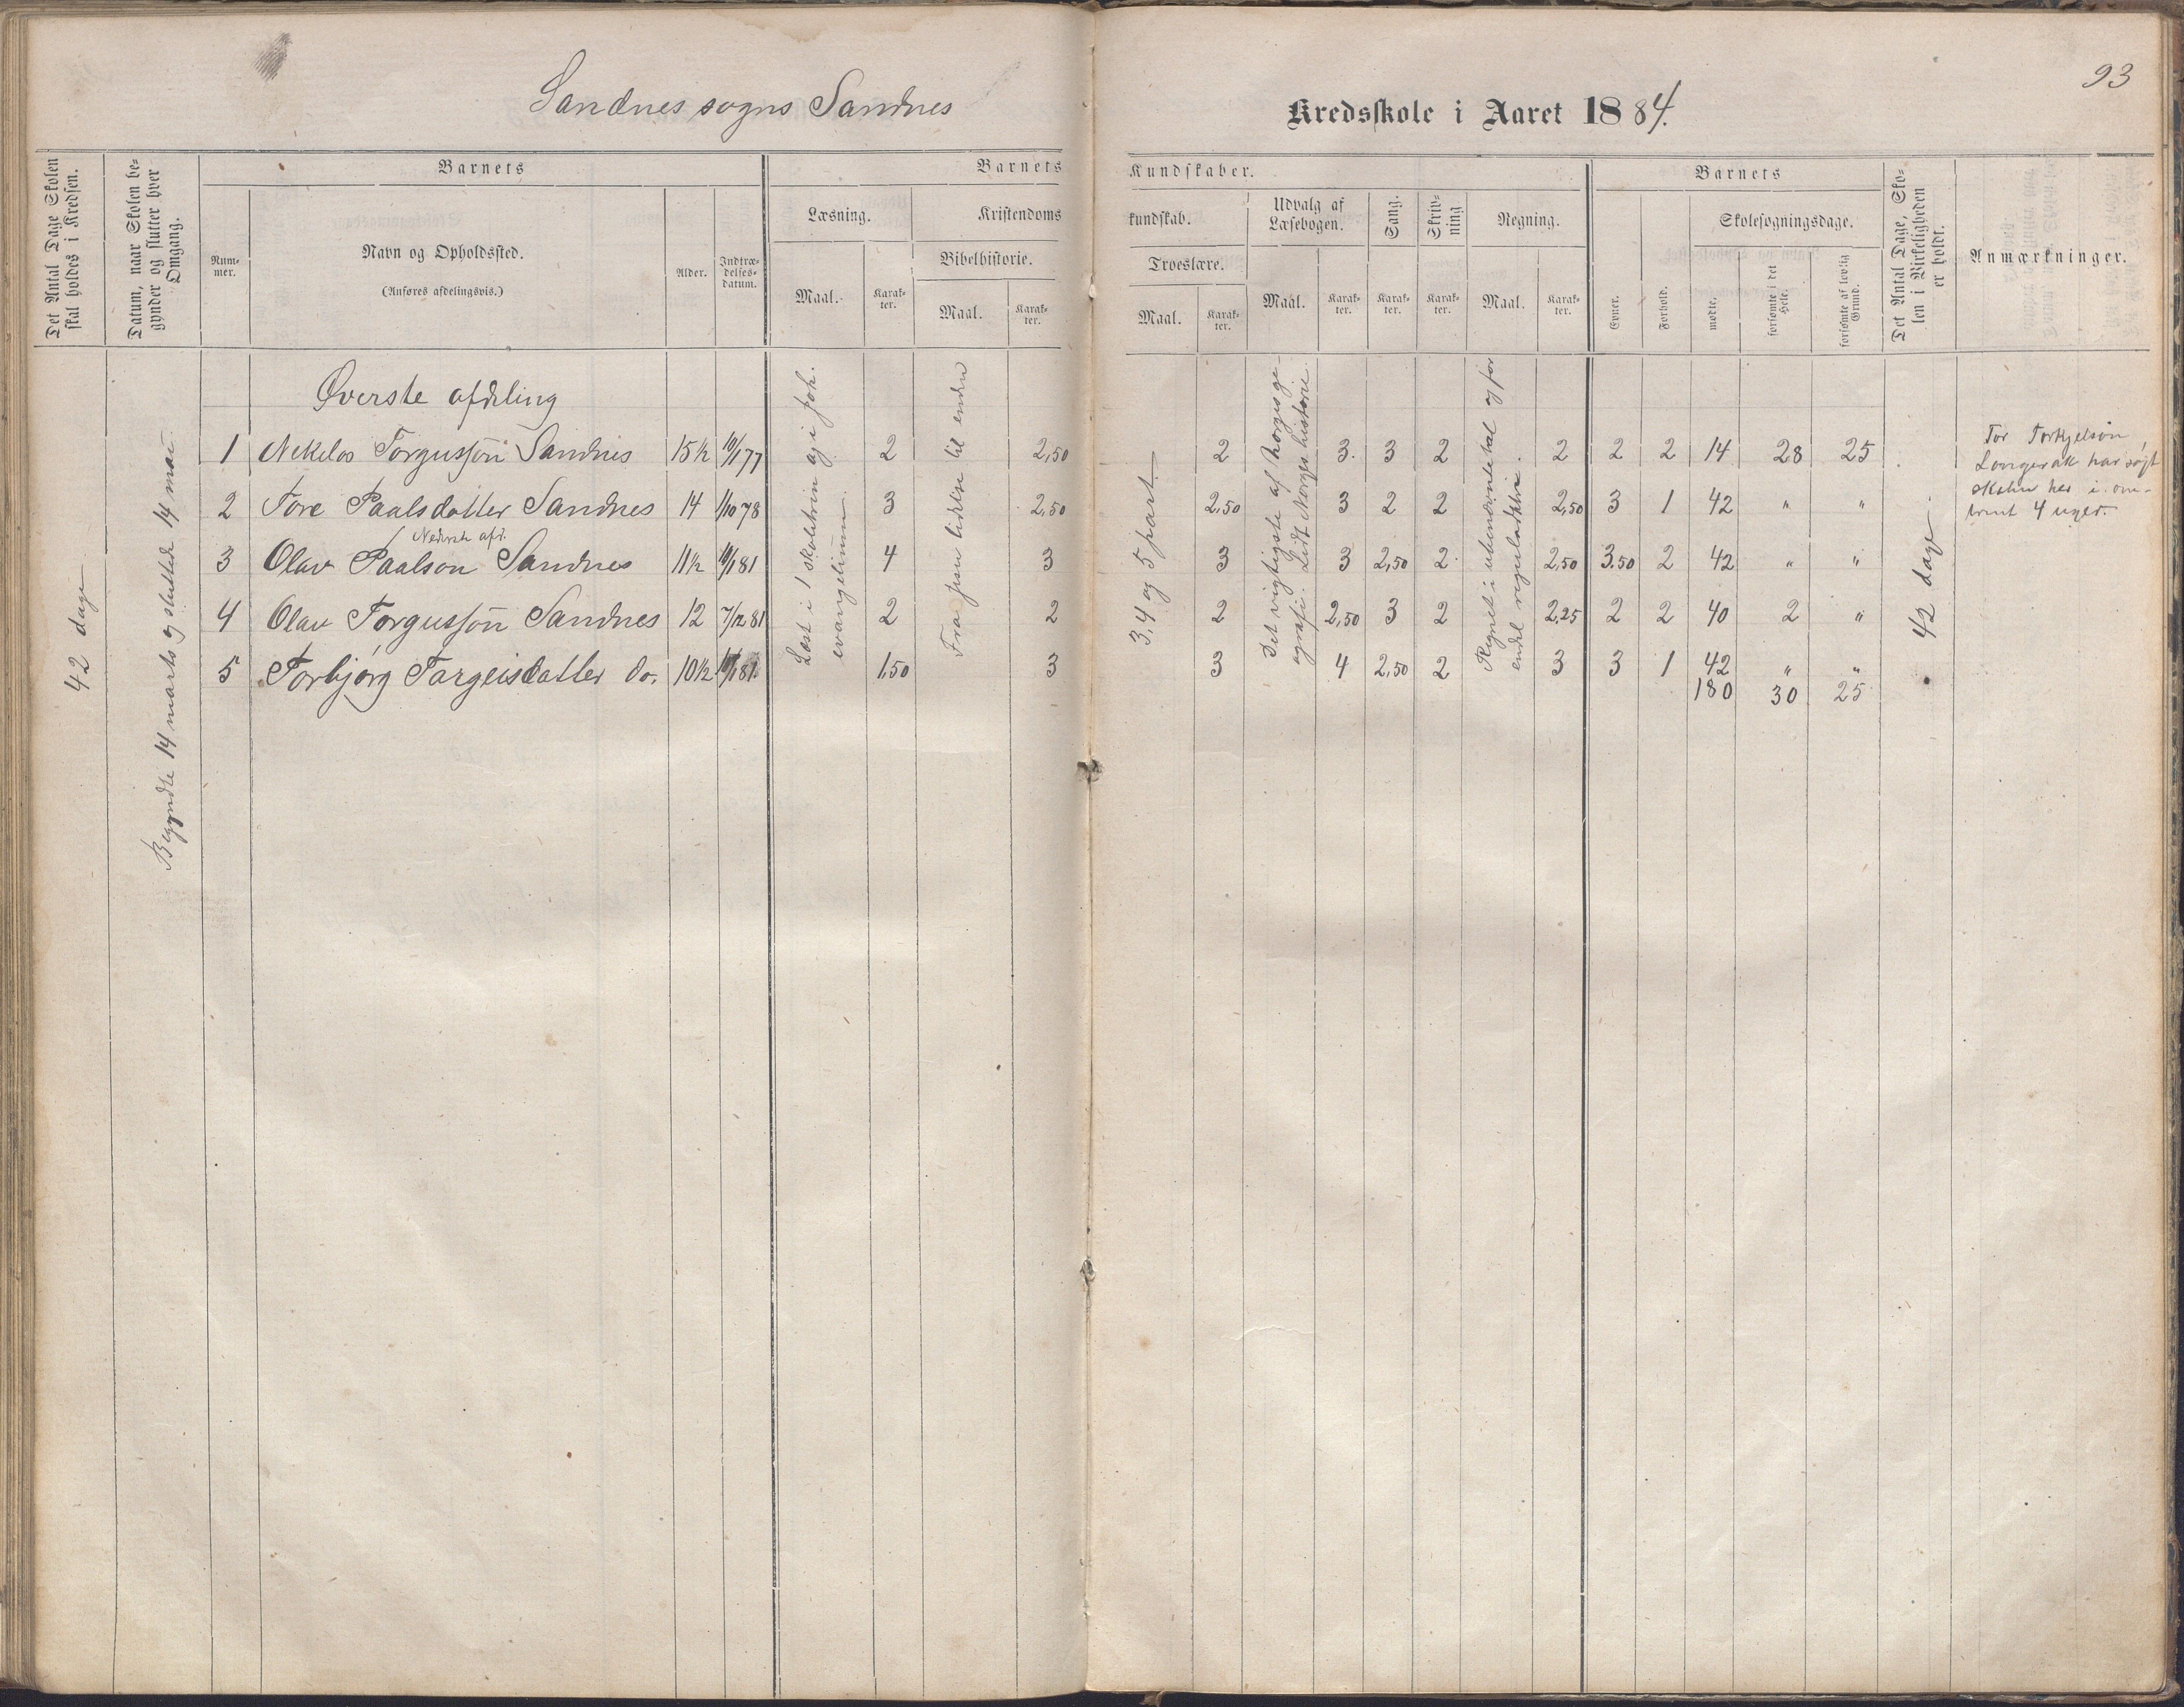 93
Sandnes sogns Sandnes Kredsskole i Aaret 1884.
Det Antal Dage Skolen skal holdes i Kredsen.
Datum, naar Skolen begynder og slutter hver Omgang.
Barnets
Nummer.
Navn og Opholdssted.
(Anføres afdelingsvis.)
Alder.
Indtrædelsesdatum.
Barnets Kundskaber.
Læsning.
Maal.
Karakter.
Kristendomskundskab.
Bibelhistorie.
Maal.
Karakter.
Troeslære.
Maal.
Karakter.
Udvalg af Læsebogen.
Maal.
Karakter.
Sang.
Karakter.
Skrivning
Karakter.
Regning.
Maal.
Karakter.
Barnets
Evner.
Forhold.
Skolesøgningsdage.
mødte.
forsømte i det Hele.
forsømte af lovlig Grund.
Det Antal Dage, Skolen i Virkeligheden er holdt.
Anmærkninger.
42 dage
Begyndte 14 marts og sluttede 14 mai
Øverste afdeling
1 Nekelos Torgusson Sandnes 15½ 10/1 77 2 2,50 2 3. 3 2 2 2 2 14 28 25
2 Tore Paalsdatter Sandnes 14 1/10 78 3 2,50 2,50 3 2 2 2,50 3 1 42 " "
Nederste afd.
3 Olav Paalson Sandnes 11½ 10/1 81 4 3 3 3 2,50 2 2,50 3.50 2 42 " "
4 Olav Torgusson Sandnes 12 7/12 81 2 2 2 2,50 3 2 2,25 2 2 40 2 "
5 Torbjørg Targeisdatter do. 10½ 10/1 81 1,50 3 3 4 2,50 2 3 3 1 42 " "
180 30 25
Læst i 1 skoletrin og i Joh.
evangelium.
Fra Jesu lidelse til enden
3, 4 og 5 part
Det vigtigste af Norges geografi. Lidt Norges historie.
Regnet i ubenævnte tal og for
endel reguladetri.
42 dage
Tor Torkjelson
Longerak har søgt
skolen her i omtrent 4 uger.